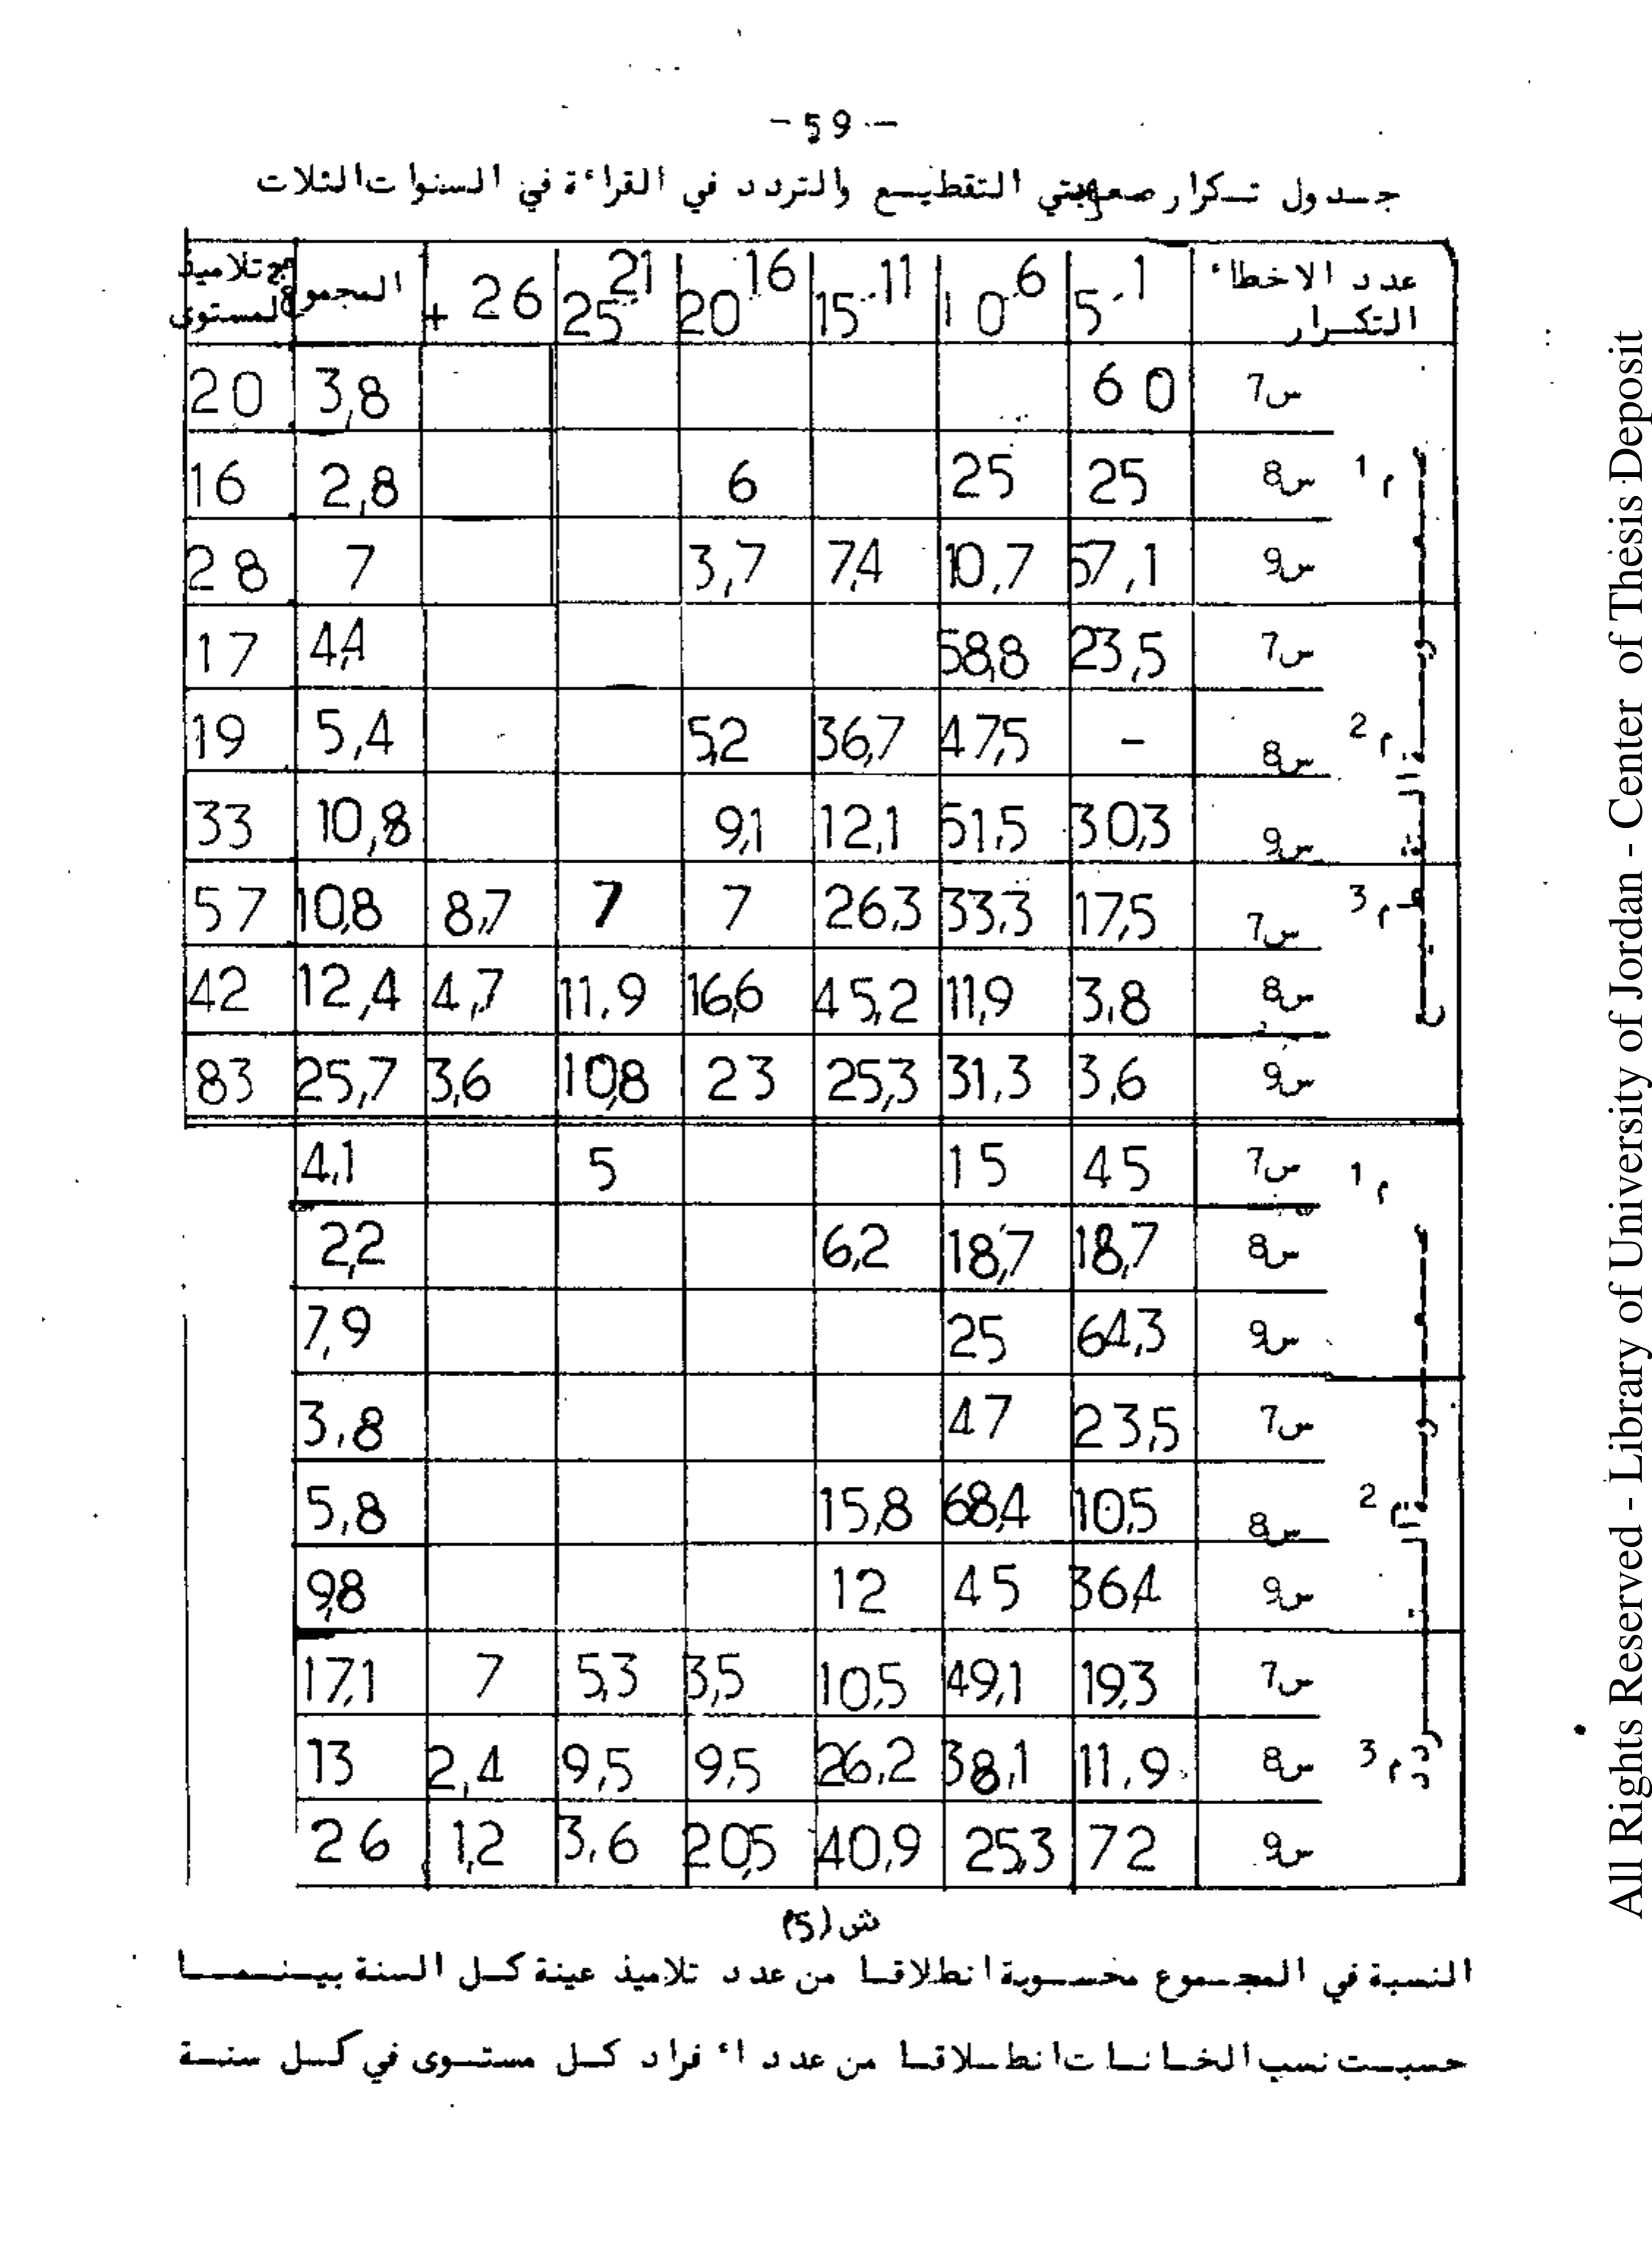 - 59 -
جدول تكرار صعوبتي التقطيع والتردد في القراءة في السنوات الثلات
عدد الاخطاء التكرار | 1-5 | 6-10 | 11-15 | 16-20 | 21-25 | 26 + | المجموع | مج تلاميذ المستوى
صعوبة التقطيع
م 1 س7 | 60 | | | | | | 3,8 | 20
س8 | 25 | 25 | | 6 | | | 2,8 | 16
س9 | 57,1 | 10,7 | 7,4 | 3,7 | | | 7 | 28
م 2 س7 | 23,5 | 58,8 | | | | | 4,4 | 17
س8 | - | 47,5 | 36,7 | 5,2 | | | 5,4 | 19
س9 | 30,3 | 51,5 | 12,1 | 9,1 | | | 10,8 | 33
م 3 س7 | 17,5 | 33,3 | 26,3 | 7 | 7 | 8,7 | 10,8 | 57
س8 | 3,8 | 11,9 | 45,2 | 16,6 | 11,9 | 4,7 | 12,4 | 42
س9 | 3,6 | 31,3 | 25,3 | 23 | 10,8 | 3,6 | 25,7 | 83
صعوبة التردد
م 1 س7 | 45 | 15 | | | 5 | | 4,1
س8 | 18,7 | 18,7 | 6,2 | | | | 2,2
س9 | 64,3 | 25 | | | | | 7,9
م 2 س7 | 23,5 | 47 | | | | | 3,8
س8 | 10,5 | 68,4 | 15,8 | | | | 5,8
س9 | 36,4 | 45 | 12 | | | | 9,8
م 3 س7 | 19,3 | 49,1 | 10,5 | 3,5 | 5,3 | 7 | 17,1
س8 | 11,9 | 38,1 | 26,2 | 9,5 | 9,5 | 2,4 | 13
س9 | 72 | 25,3 | 40,9 | 20,5 | 3,6 | 1,2 | 26
ش(5)
النسبة في المجموع محسوبة انطلاقا من عدد تلاميذ عينة كل السنة بينما
حسبت نسب الخانات انطلاقا من عدد اء فراد كل مستوى في كل سنة
All Rights Reserved - Library of University of Jordan - Center of Thesis Deposit